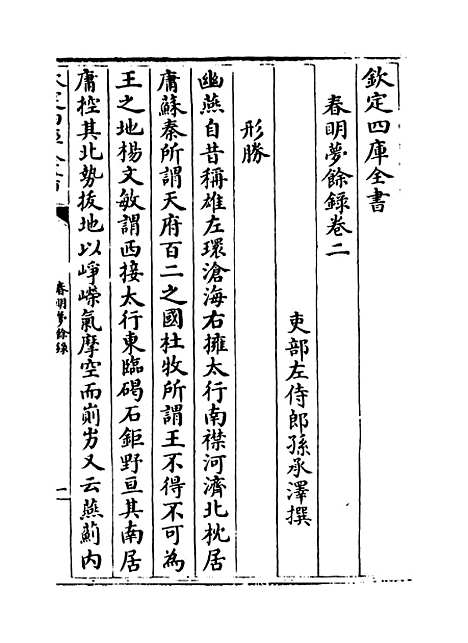 欽定四庫全書
春明夢餘錄卷二
吏部左侍郎孫承澤撰
形勝
幽燕自昔稱雄左環滄海右擁太行南襟河濟北枕居
庸蘇秦所謂天府百二之國杜牧所謂王不得不可為
王之地楊文敏謂西接太行東臨碣石鉅野亘其南居
庸控其北勢拔地以崢嶸氣摩空而崱屴又云燕薊内
春明夢餘錄
一